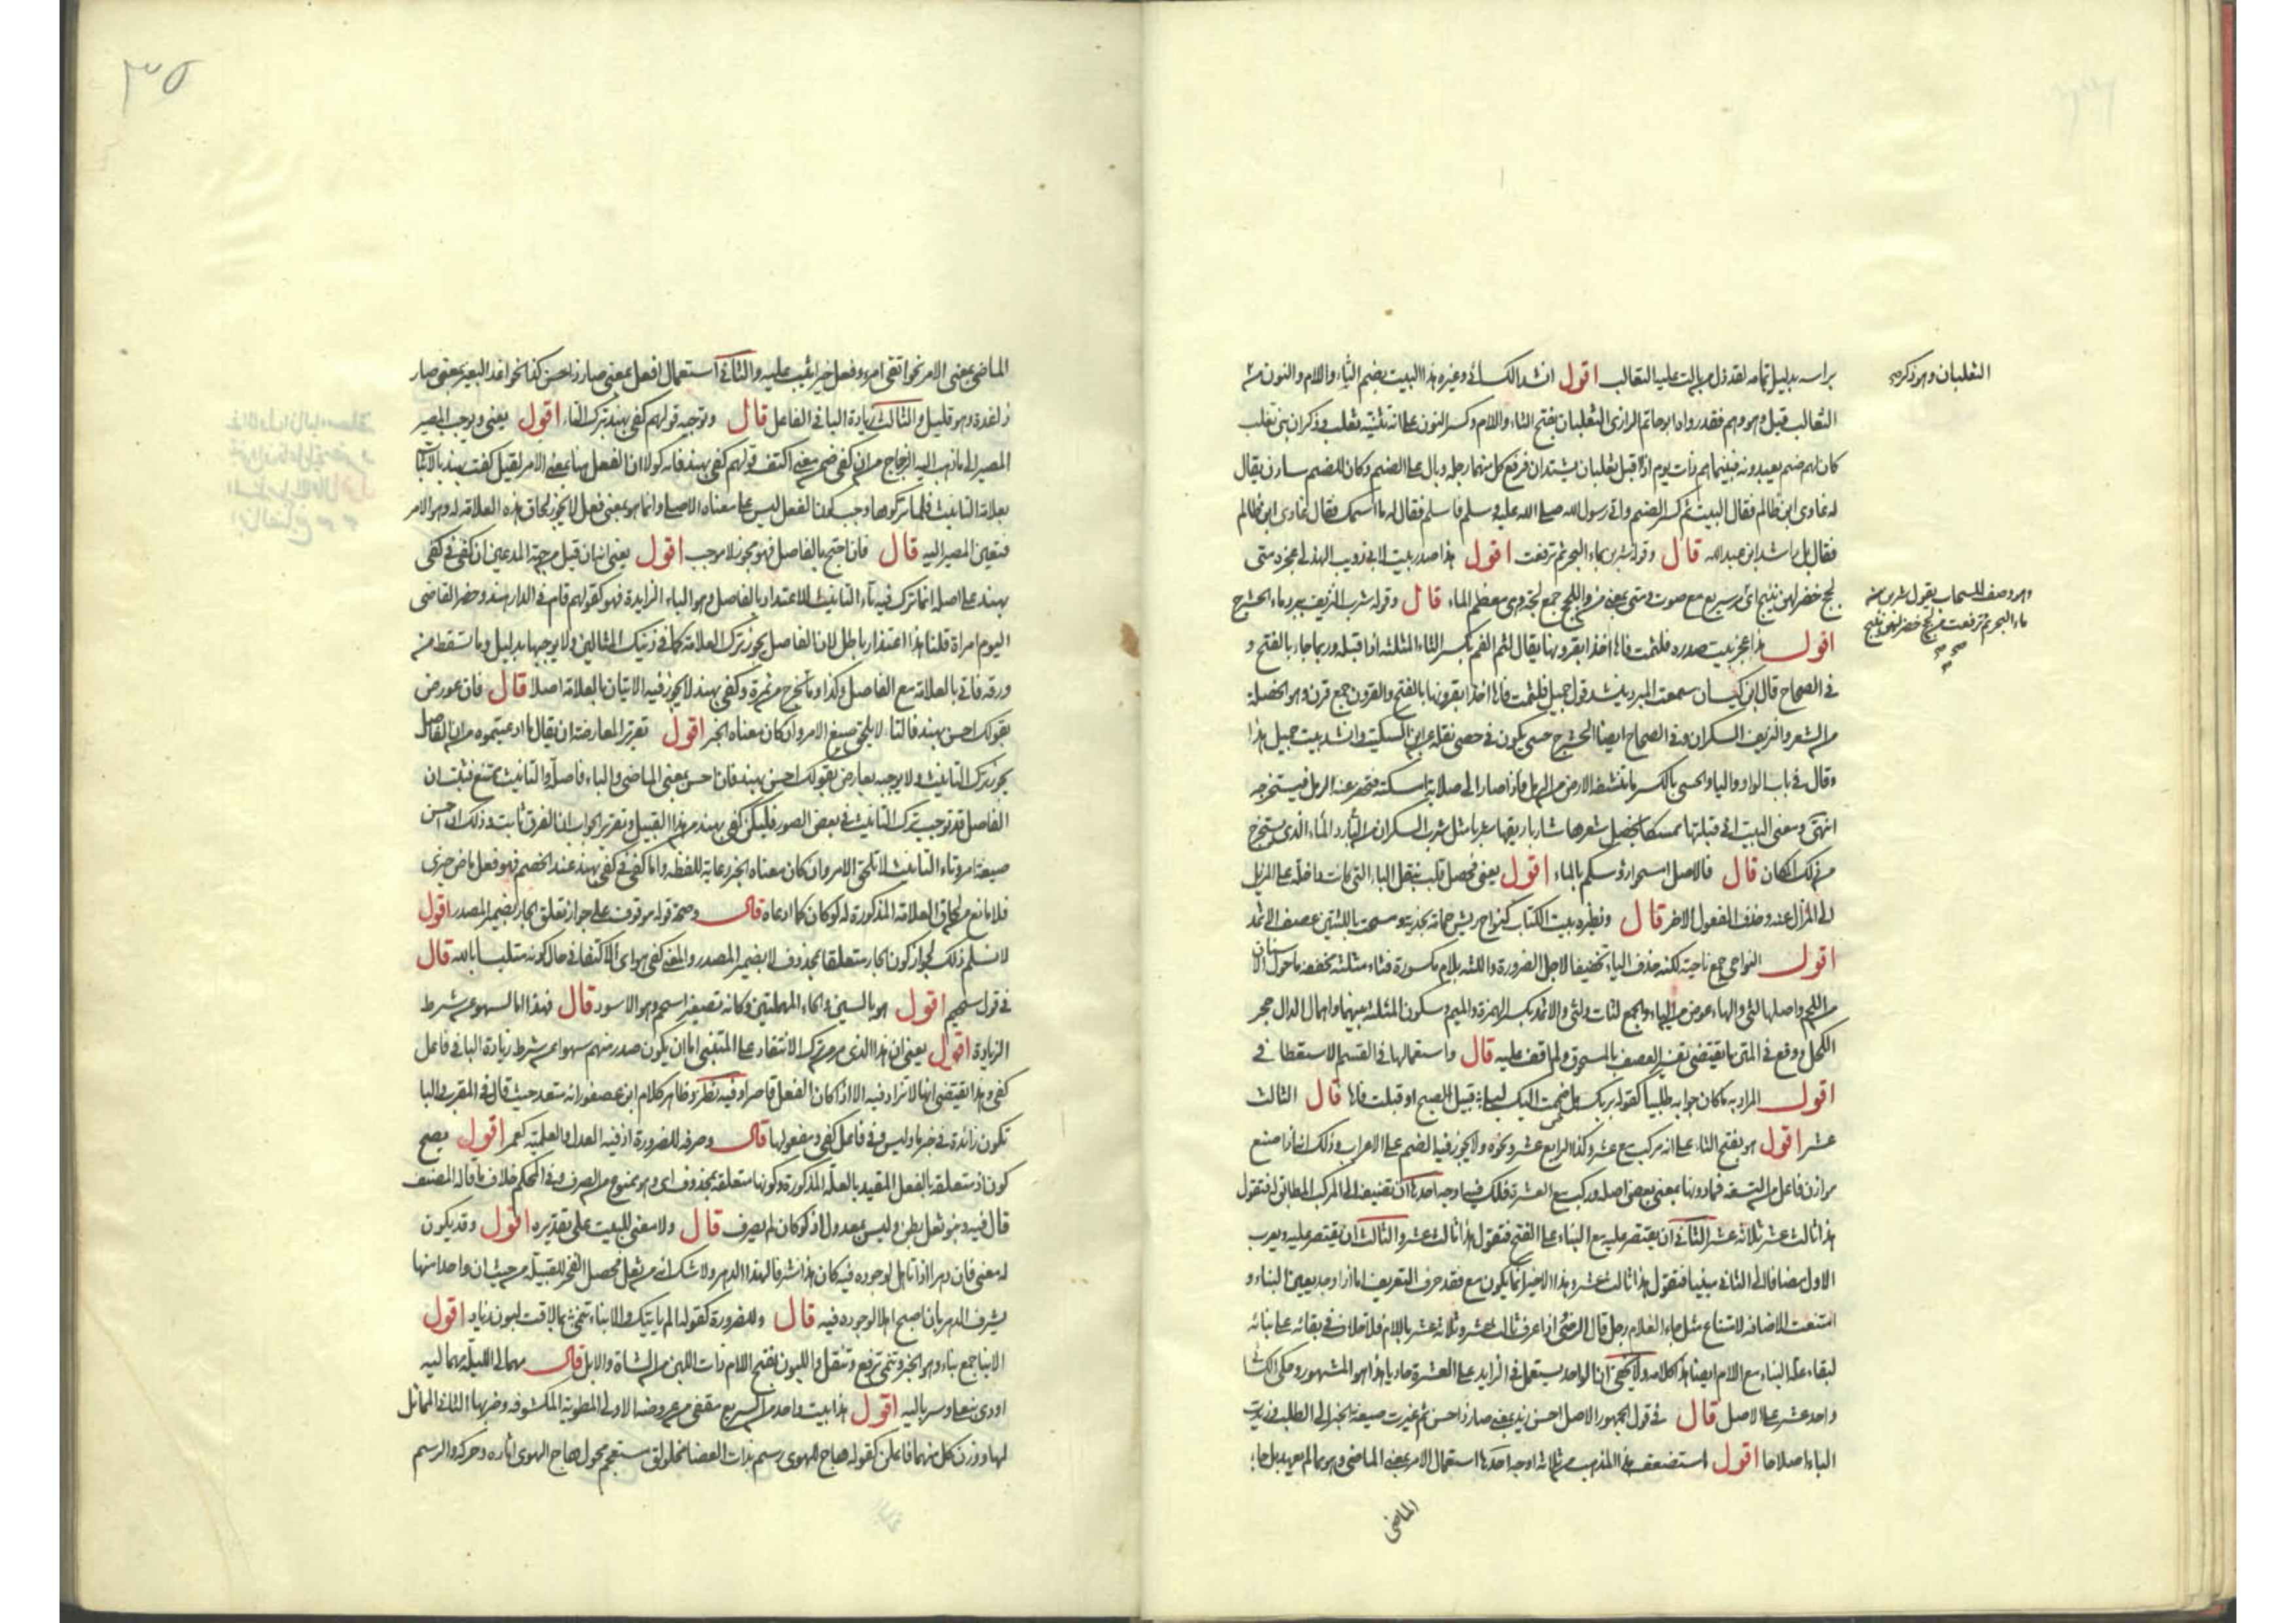 براسه بدليل تمامه لقد ذل من بالت عليه الثعالب اقول انشد الكسائي وغيره هذا البيت بضم الثاء واللام والنون
الثعلبان وهو ذكر
الثعالب قيل وهو وهم فقد رواه ابو حاتم الرازي الثعلبان بفتح الثاء واللام وكسر النون على انه تثنية ثعلب وذكر ان بني ثعلب
كان لهم صنم يعبدونه فبينما هم ذات يوم اذ اقبل ثعلبان يشتدان فرفع كل منهما رجله وبال على الصنم وكان للصنم سادن يقال
له غاوي ابن ظالم فقال البيت ثم كسر الصنم واتى رسول الله صلى الله عليه وسلم فاسلم فقال له ما اسمك فقال غاوي ابن ظالم
فقال بل راشد ابن عبد الله قال وقوله شربن بماء البحر ثم ترفعت اقول هذا صدر بيت لابي ذويب الهذلي عجزه متى
لجج خضر لهن نئيج اي مر سريع مع صوت ومتى بمعنى من واللجج جمع لجة وهي معظم الماء قال وقوله شرب النزيف ببرد ماء الحشرج
وهو وصف السحاب يقول شربن من
ماء البحر ثم ترفعت من لجج خضر لهن نئيج
اقول هذا عجز بيت صدره فلثمت فاها اخذا بقرونها يقال لثم الفم بكسر الثاء المثلثة اذا قبله وربما جاء بالفتح و
في الصحاح قال ابن كيسان سمعت المبرد ينشد قول جميل فلثمت فاها اخذا بقرونها بالفتح والقرون جمع قرن وهو الخصلة
من الشعر والنزيف السكران وفي الصحاح ايضا الحشرج حسي يكون في حصى نقله عن ابن السكيت وانشد بيت جميل هذا
وقال في باب الواو والياء والحسي بالكسر ما تنشفه الارض من الرمل فاذا صار الى صلابة امسكته فتحفر عنه الرمل فيستخرجه
انتهى ومعنى البيت اني قبلتها ممسكا بخصل شعرها شاربا ريقها شربا مثل شرب السكران من البارد الماء الذي يستخرج
من ذلك المكان قال فالاصل امسحوا رؤسكم بالماء اقول يعني فحصل قلب بنقل الباء التي كانت داخلة على المزيل
الى المزال عنه وحذف المفعول الاخر قال ونظيره بيت الكتاب كنواح ريش حمامة نجدية ومسحت باللثتين عصف الاثمد
اقول النواحي جمع ناحية لكنه حذف الياء تخفيفا لاجل الضرورة واللثة بلام مكسورة فثاء مثلثة مخففة ما حول الاسنان
من اللحم واصلها لثي والهاء عوض من الياء والجمع لثات ولثي والاثمد بكسر الهمزة والميم وسكون المثلثة بينهما واهمال الدال حجر
الكحل ووقع في المتن ما يقتضي تفسير العصف بالمسحوق ولم اقف عليه قال واستعمالها في القسم الاستعطافي
اقول المراد به ما كان جوابه طلبيا كقوله بربك هل ضممت اليك ليلى قبيل الصبح او قبلت فاها قال الثالث
عشر اقول هو بفتح الثاء على انه مركب مع عشر وكذا الرابع عشر ونحوه ولا يجوز فيه الضم على الاعراب وذلك انك اذا صنع
موازن فاعل من التسعة فما دونها بمعنى بعض اصله وركب مع العشرة فلك فيه اوجه احدها ان تضيفه الى المركب المطابق له فتقول
هذا ثالث عشر ثلاثة عشر الثاني ان يقتصر عليه مع البناء على الفتح فتقول هذا ثالث عشر والثالث ان يقتصر عليه ويعرب
الاول مضافا الى الثاني مبنيا فتقول هذا ثالث عشر وهذا الاخير انما يكون مع فقد حرف التعريف اما اذا وجد تعين البناء و
امتنعت الاضافة لامتناع مثل جاء الغلام رجل قال الرضي اذا عرف ثالث عشر وثلاثة عشر باللام فلا خلاف في بقائه على بنائه
لبقاء علة البناء مع اللام ايضا هذا كلامه ولا يخفى ان الواحد يستعمل في الزايد على العشرة حاديا هذا هو المشهور وحكى الكسائي
واحد عشر على الاصل قال في قول الجمهور الاصل احسن زيد بمعنى صار ذا حسن ثم غيرت صيغة الخبر الى الطلب وزيدت
الباء اصلاحا اقول استضعف هذا المذهب من ثلاثة اوجه احدها استعمال الامر بمعنى الماضي وهو مما لم يعهد بل جاء
الماضي
٣٥
الماضي بمعنى الامر نحو اتقى امرؤ فعل خيرا يثب عليه والثاني استعمال افعل بمعنى صار ذا حسن كذا نحو اغد البعير بمعنى صار
ذا غدة وهو قليل والثالث زيادة الباء في الفاعل قال وتوجيه قولهم كفى بهند بترك التاء اقول يعني ويوجب المصير
المصير الى ما ذهب اليه الزجاج من ان كفى ضمن معنى اكتف قولهم كفى بهند فانه لولا ان الفعل هنا بمعنى الامر لقيل كفت بهند بالاتيان
بعلامة التانيث فلما تركوها وجب كون الفعل ليس على معناه الاصلي وانما هو بمعنى فعل لا يجوز لحاق هذه العلامة له وهو الامر
فتعين المصير اليه قال فان احتج بالفاصل فهو مجوز لا موجب اقول يعني انه ان قيل من جهة المدعين ان كفى في كفى
بهند على اصله انما ترك فيه تاء التانيث للاعتداد بالفاصل وهو الباء الزايدة فهو كقولهم قام في الدار هند وحضر القاضي
اليوم امراة قلنا هذا اعتذار باطل لان الفاصل يجوز ترك العلامة كما في ذينك المثالين ولا يوجبها بدليل وما تسقط من
ورقة فاتى بالعلامة مع الفاصل وكذا وما تخرج من ثمرة وكفى بهند لا يجوز فيه الاتيان بالعلامة اصلا قال فان عورض
بقولك احسن بهند فالتاء لا تلحق صيغ الامر وان كان معناه الخبر اقول تقرير المعارضة ان يقال ما ادعيتموه من ان الفاصل
يجوز ترك التانيث ولا يوجبه يعارض بقولك احسن بهند فان احسن بمعنى الماضي والباء فاصل والتانيث ممتنع فثبت ان
الفاصل قد توجب ترك التانيث في بعض الصور فليكن كفى بهند من هذا القبيل وتقرير الجواب ان الفرق ثابت وذلك ان احسن
صيغة امر وتاء التانيث لا تلحق الامر وان كان معناه الخبر رعاية للفظه واما كفى في كفى بهند عند الخصم فهو فعل ماض خبري
فلا مانع من لحاق العلامة المذكورة له لو كان كما ادعاه قال وصحة قوله موقوف على جواز تعلق الجار بضمير المصدر اقول
لا نسلم ذلك لجواز كون الجار متعلقا بمحذوف لا بضمير المصدر والمعنى كفى هو اي الاكتفاء في حال كونه متلبسا بالله قال
في قول سحيم اقول هو بالسين والحاء المهملتين وكانه تصغير اسحم وهو الاسود قال فهذا اما لسهو عن شرط
الزيادة اقول يعني ان هذا الذي مر من ترك الانتقاد على المتنبي اما ان يكون صدر منهم سهوا عن شرط زيادة الباء في فاعل
كفى وهذا يقتضي انها لا تزاد فيه الا اذا كان الفعل قاصرا وفيه نظر وظاهر كلام ابن عصفور انه متعد حيث قال في المقرب والباء
تكون زائدة في خبر ما وليس وفي فاعل كفى ومفعولها قال وصرفه للضرورة اذ فيه العدل والعلمية كعمر اقول يصح
كون اذ متعلقة بالفعل المقيد بالعلة المذكورة وكونها متعلقة بمحذوف اي وهو ممنوع من الصرف وفي المحكم خلاف ما قاله المصنف
قال فيه وبنو ثعل بطن وليس بمعدول اذ لو كان لم يصرف قال ولا معنى للبيت على تقديره اقول وقد يكون
له معنى فان دهرا اذا تاهل لوجوده فيه كان هذا شرفا لهذا الدهر ولا شك انه من ثعل فحصل الفخر للقبيلة من حيث ان واحدا منها
يشرف الدهر بان اصبح اهلا لوجوده فيه قال وللضرورة كقوله الم ياتيك والانباء تنمي بما لاقت لبون بني زياد اقول
الانباء جمع نباء وهو الخبر وتنمي ترفع وتنقل واللبون بفتح اللام ذات اللبن من الشاة والابل قال مهما لي الليلة مهما ليه
اودى بنعلي وسرباليه اقول هذا بيت واحد من السريع مقفى من عروضه الاولى المطوية المكشوفة وضربها الثاني المماثل
لها ووزن كل منهما فاعلن كقوله هاج الهوى رسم بذات الغضا مخلولق مستعجم محول هاج الهوى اثاره وحركه والرسم